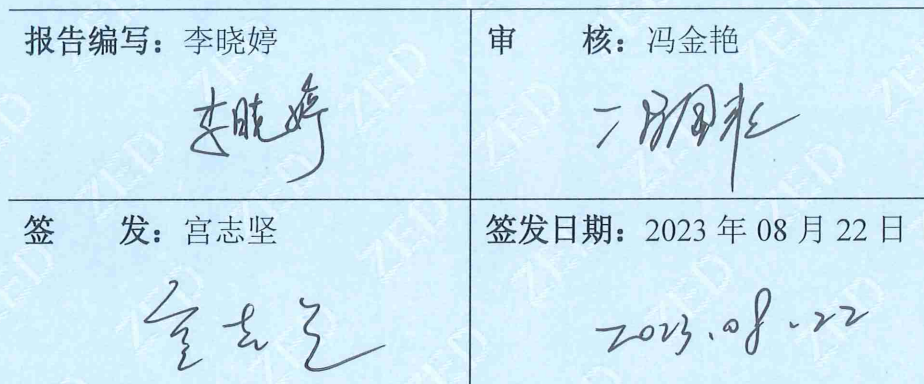 报告编写：李晓婷
审 核：冯金艳
李晓婷
签 发：宫志坚
签发日期：2023 年 08 月 22 日
2023.08.22
ZED